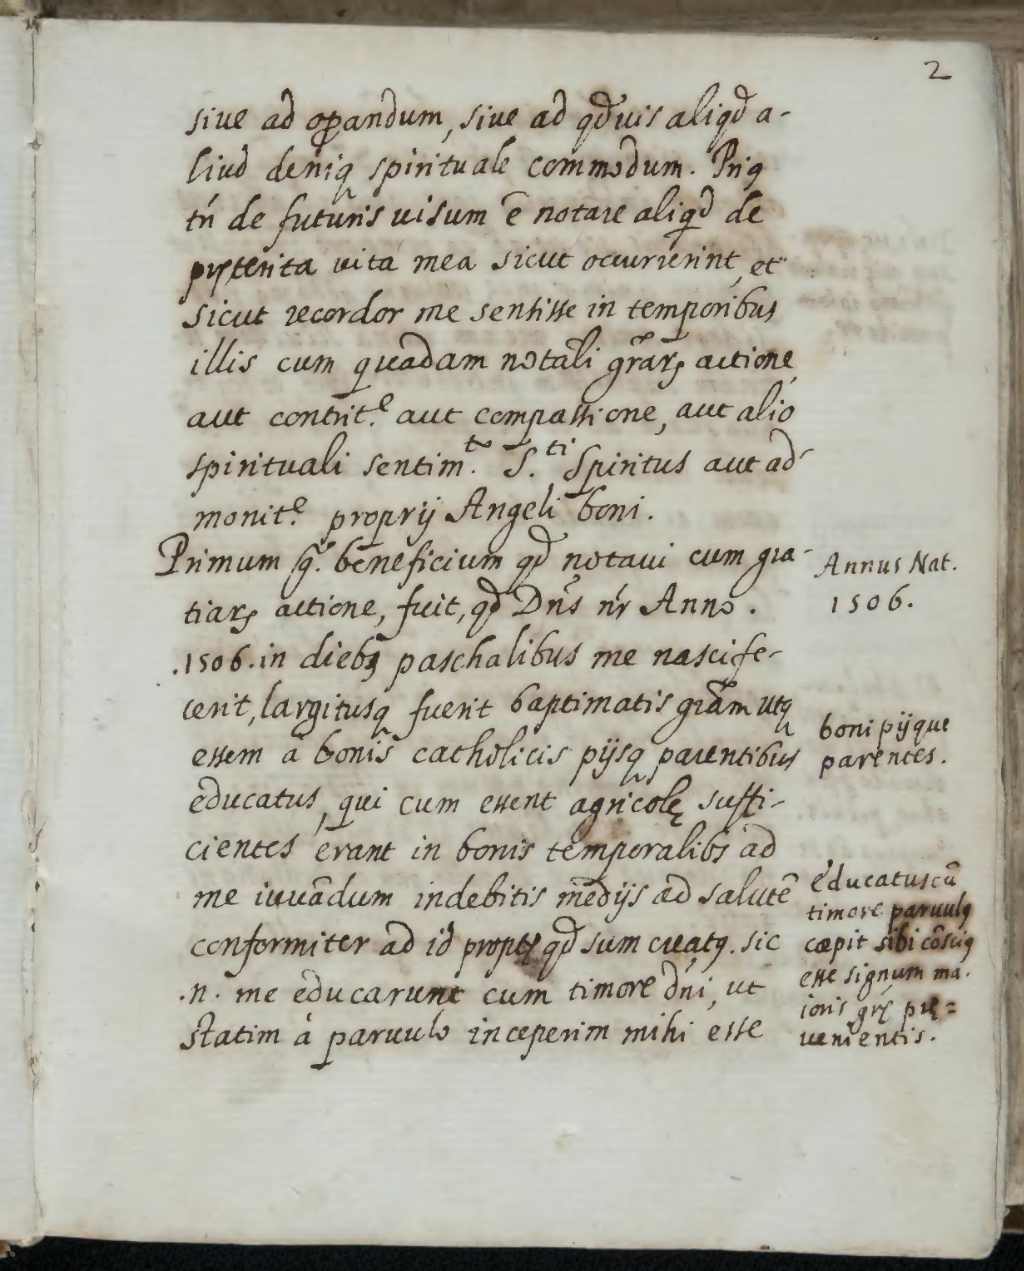 2
siue ad oꝑandum, siue ad qđuis aliqđ a-
liud deniq spirituale commodum. Priꝰ
tń de futuris uisum ē notare aliqđ de
pręterita uita mea sicut occurrerint, et
sicut recordor me sensisse in temporibus
illis cum quadam notāli grārꝝ actione,
aut contrit.ᵉ aut compassione, aut alio
spirituali sentim.ᵗᵒ S.ᵗⁱ Spiritus aut ad-
monit.ᵉ proprij Angeli boni.
Primum g̃. beneficium qđ notaui cum gra-
tiarꝝ actione, fuit, qđ Dńs nr̃ Anno.
.1506. in diebꝫ paschalibus me nasci fe-
cerit, largitusq fuerit baptimatis grām utq
essem à bonis catholicis pijsq parentibus
educatus, qui cum essent agricolę suffi-
cientes erant in bonis temporalibꝫ ad
me iuuādum in debitis medijs ad salutē
conformiter ad id propter qđ sum creatꝰ. sic
.n. me educarunt cum timore dńi, ut
statim à paruulo inceperim mihi esse
Annus Nat.
1506.
boni pijque
parentes.
educatus cū
timore paruulꝰ
cœpit sibi cōsciꝰ
esse signum ma-
ioris grę pre=
uenientis.